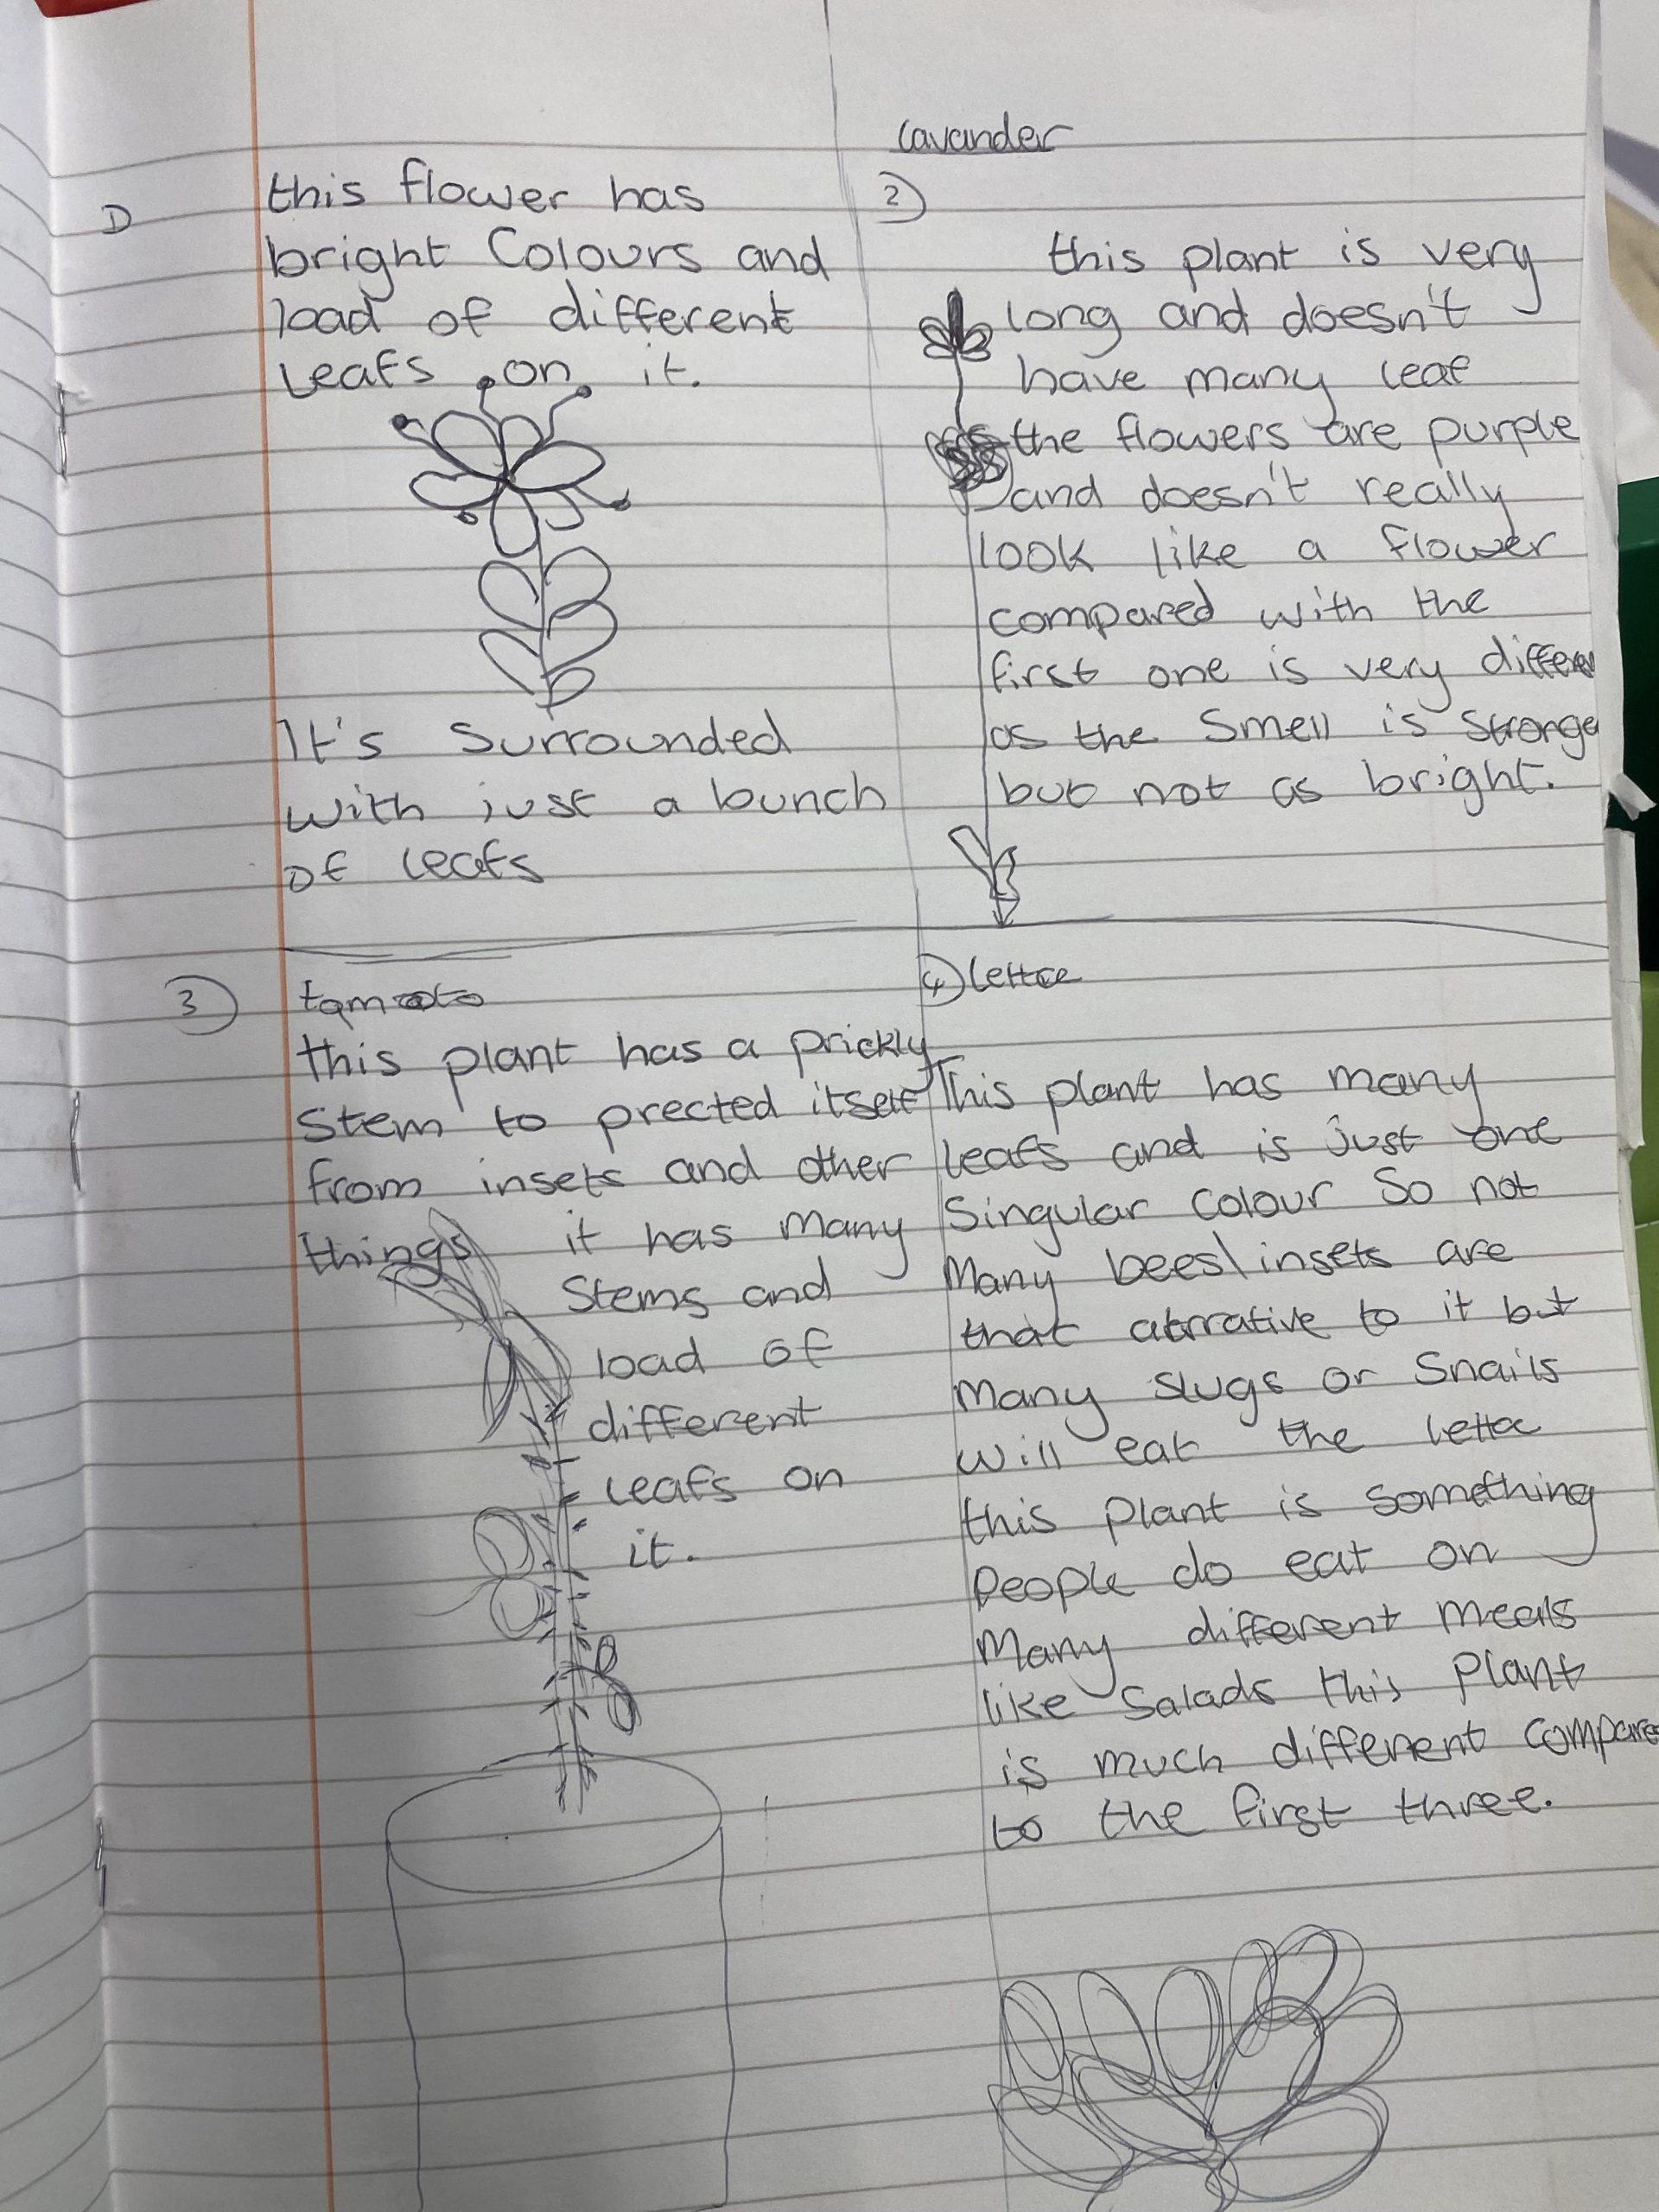 this flower has
bright Colours and
load of different
leafs on it.
It's surrounded
with just a bunch
of leafs
lavander
2)
this plant is very
long and doesn't
have many leaf
the flowers are purple
and doesn't really
look like a flower
compared with the
first one is very differen
as the smell is stronge
but not as bright.
3) tamoto
this plant has a prickly
stem to prected itself
from insets and other
things it has many
stems and
load of
different
leafs on
it.
4) lettce
This plant has many
leafs and is just one
singular colour so not
many bees\insets are
that atrrative to it but
many slugs or snails
will eat the lettce
this plant is something
people do eat on
many different meals
like salads this plant
is much different compare
to the first three.